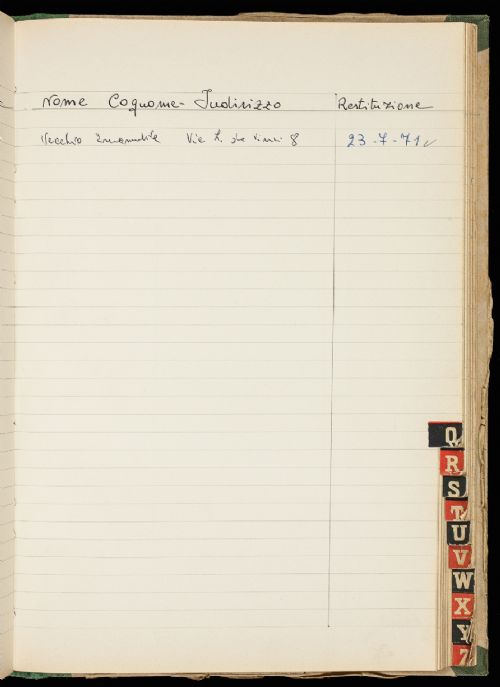 Nome Cognome - Indirizzo Restituzione
Vecchio Emanuele Via L. 8 23-7-71
Q
R
S
T
U
V
W
X
Y
Z